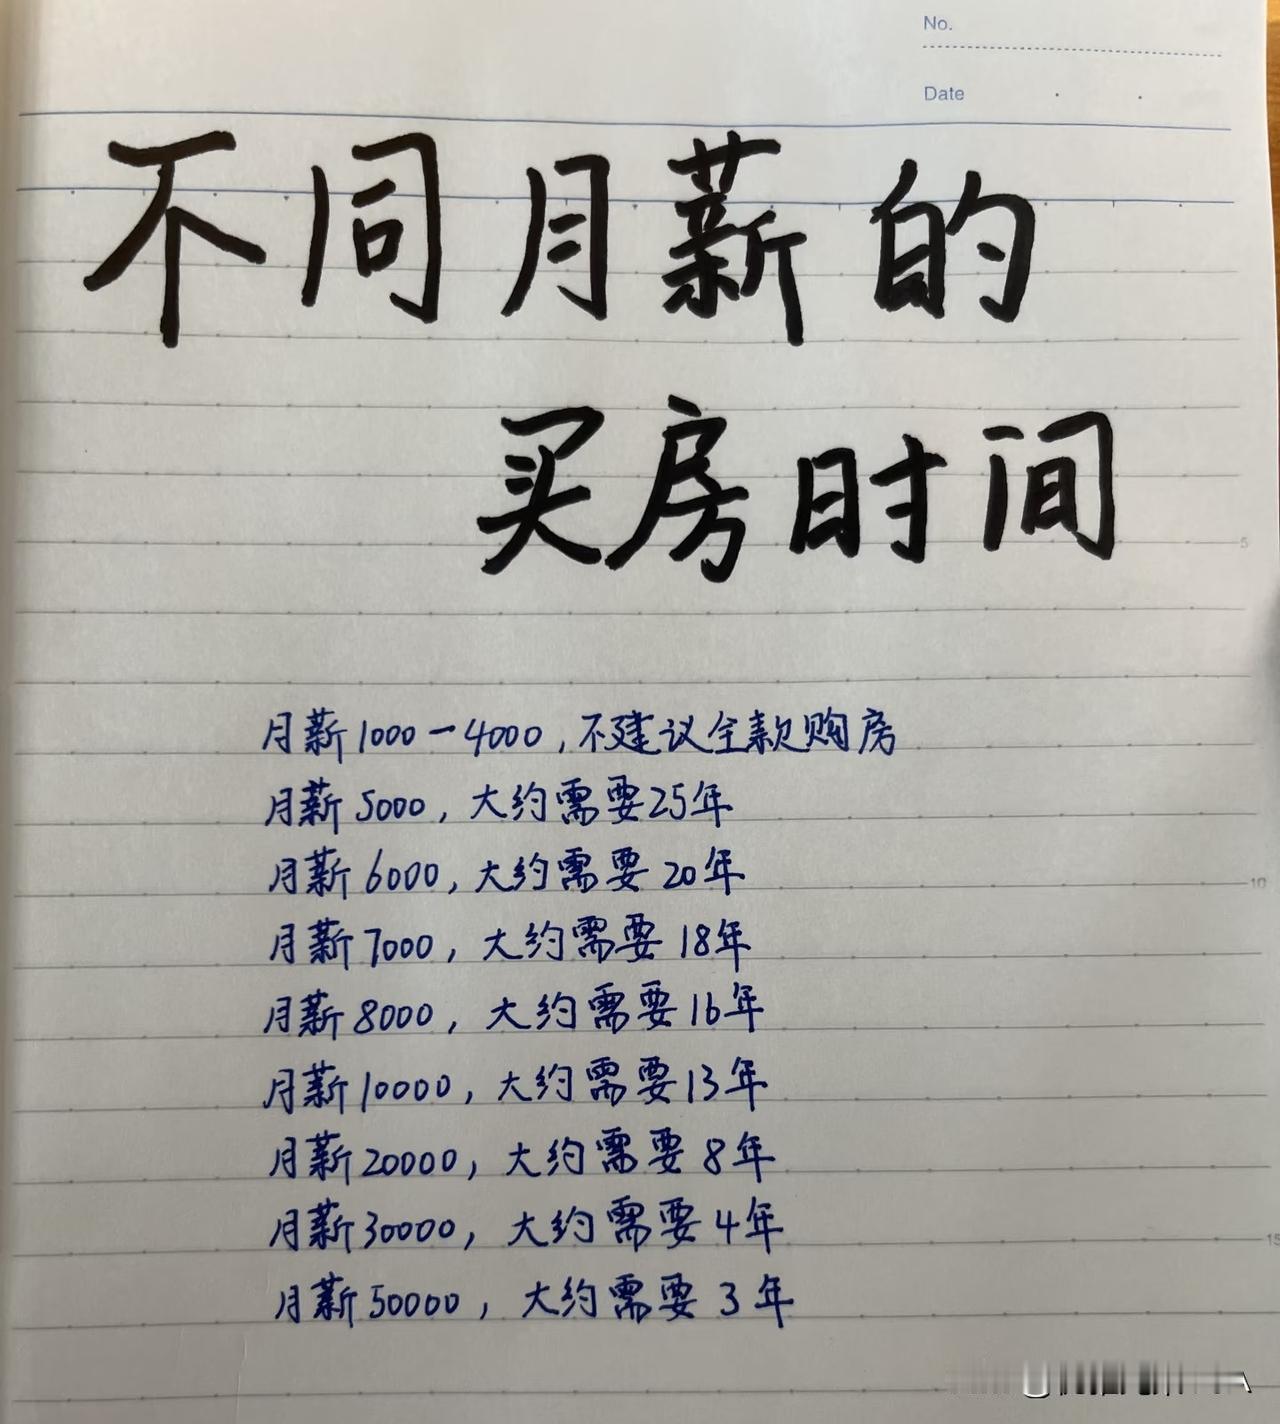 No.
Date
不同月薪的
买房时间
5
月薪1000-4000,不建议全款购房
月薪5000,大约需要25年
月薪6000,大约需要20年
10
月薪7000,大约需要18年
月薪8000,大约需要16年
月薪10000,大约需要13年
月薪20000,大约需要8年
月薪30000,大约需要4年
15
月薪50000,大约需要3年